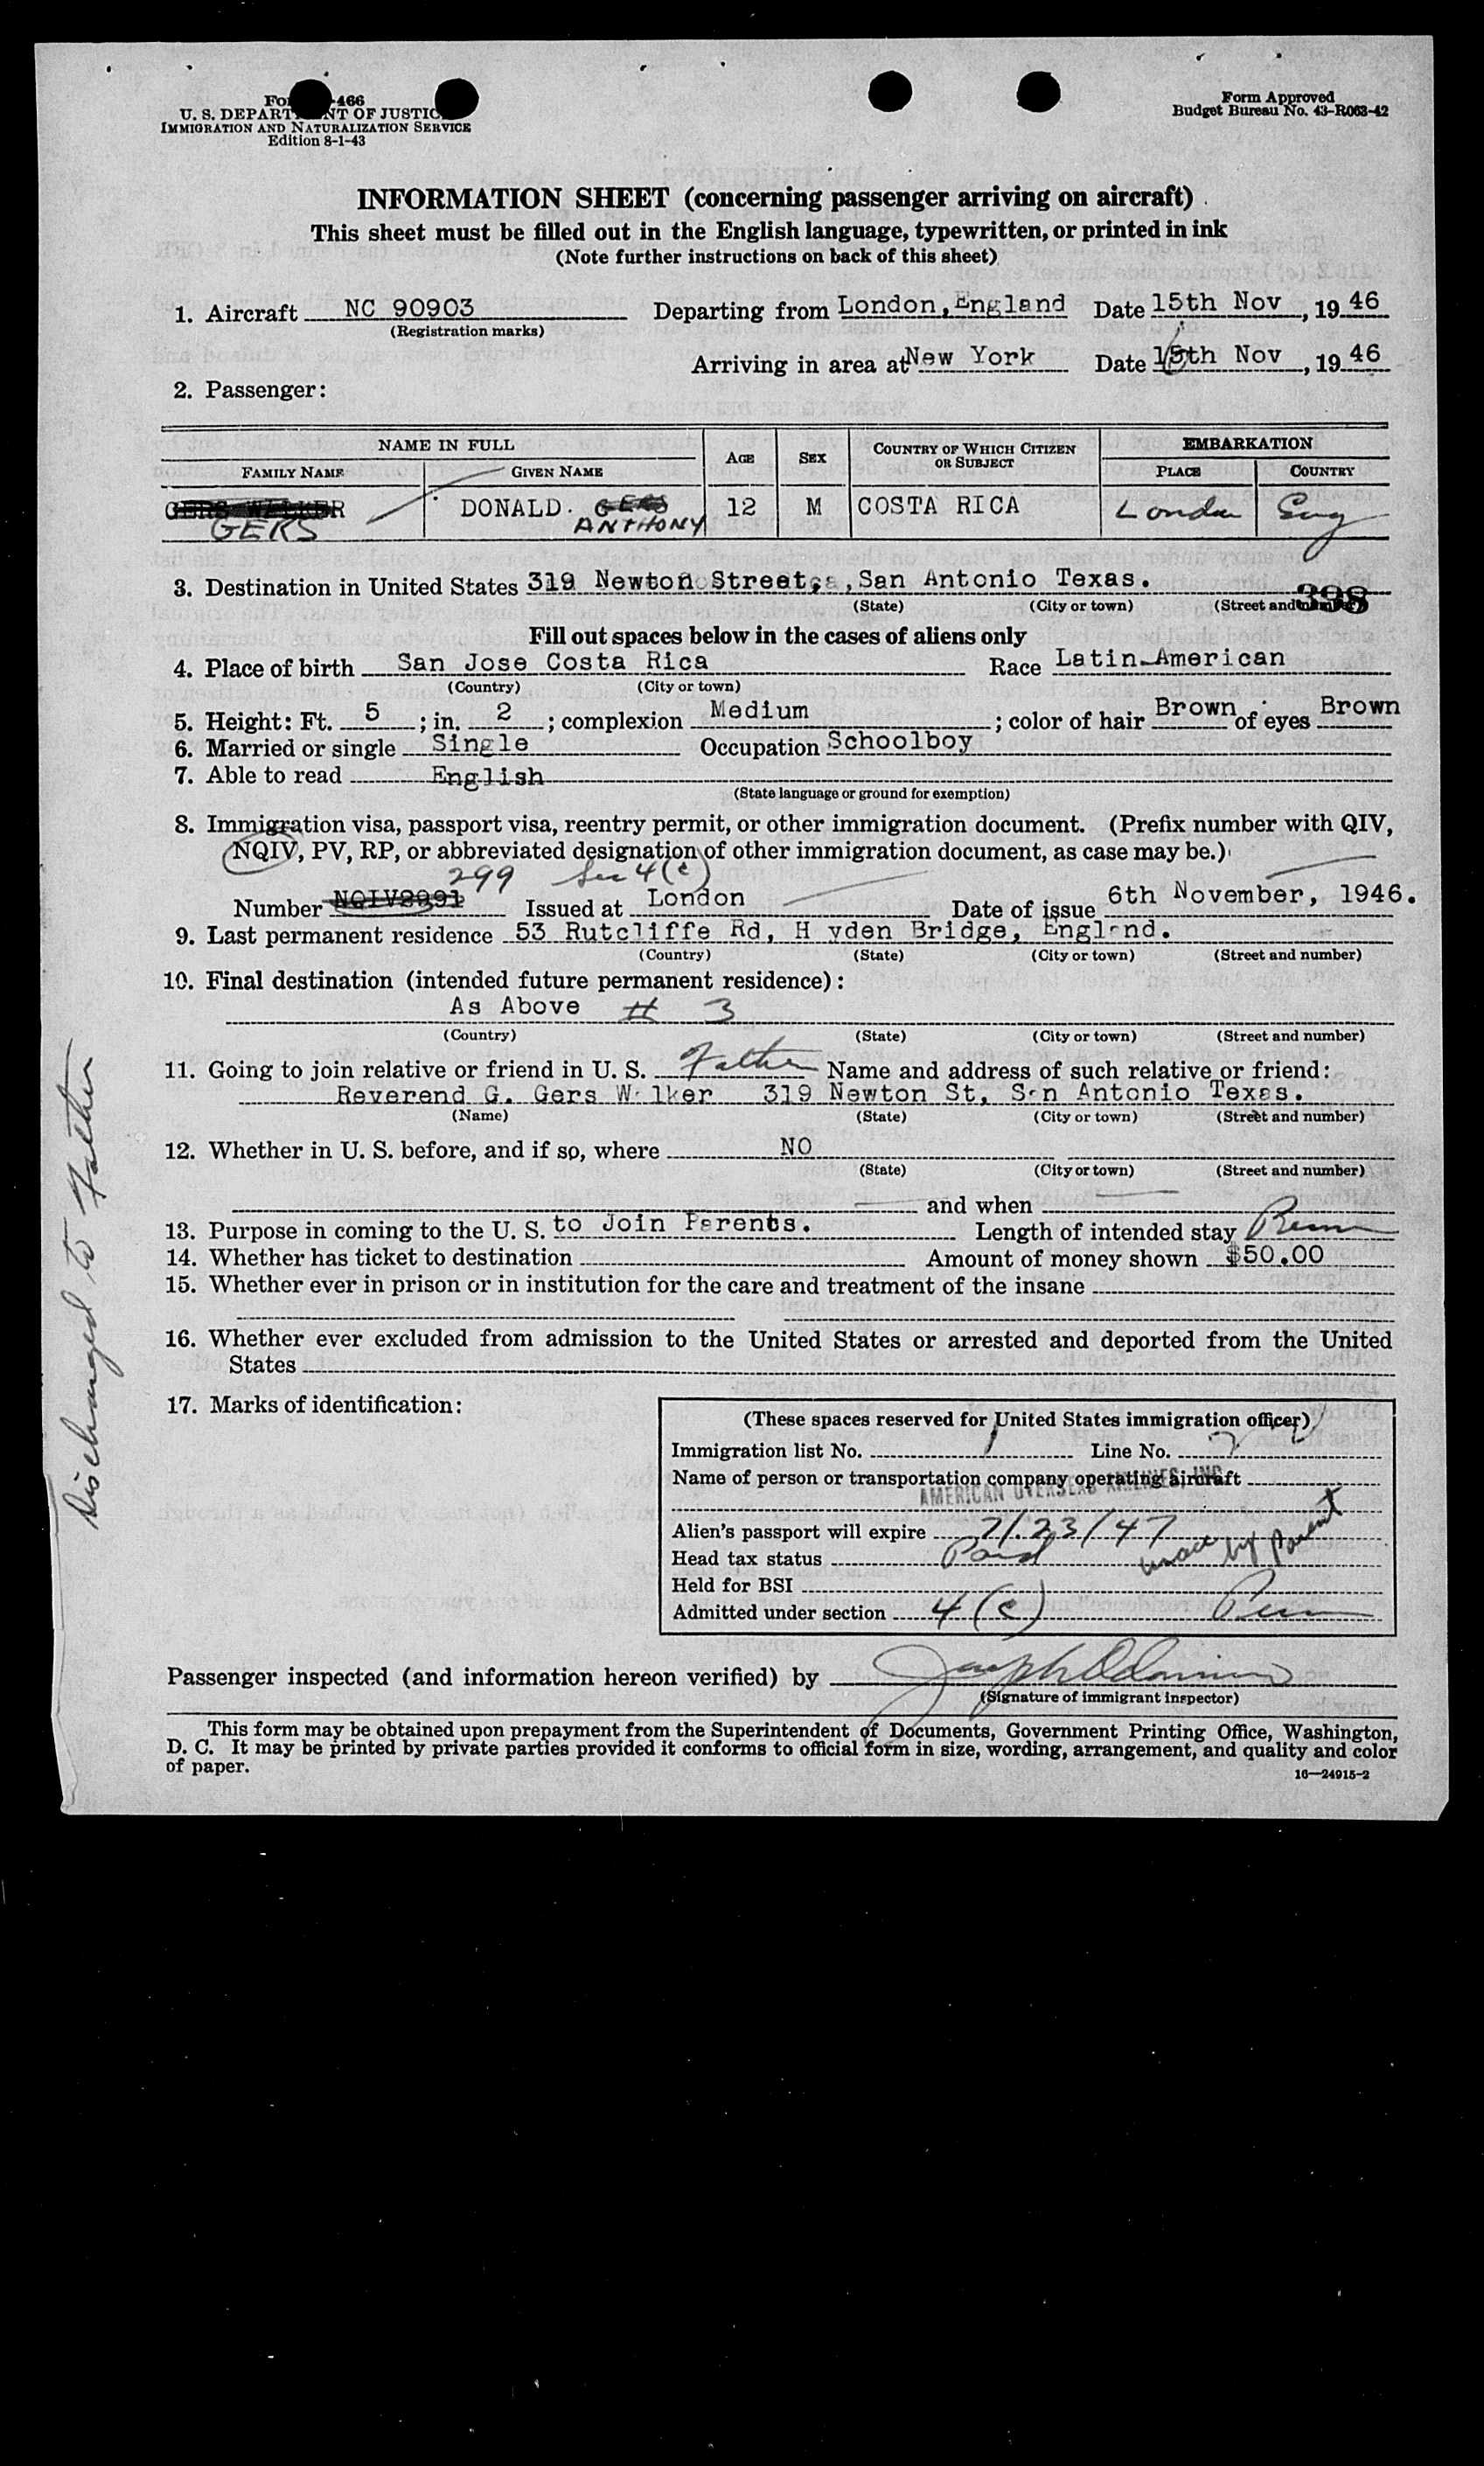 Form -466
U. S. DEPARTMENT OF JUSTICE
IMMIGRATION AND NATURALIZATION SERVICE
Edition 8-1-43
Form Approved
Budget Bureau No. 43-R063-42
INFORMATION SHEET (concerning passenger arriving on aircraft)
This sheet must be filled out in the English language, typewritten, or printed in ink
(Note further instructions on back of this sheet)
1. Aircraft NC 90903 Departing from London, England Date 15th Nov, 19 46
(Registration marks)
Arriving in area at New York Date 16th Nov, 19 46
2. Passenger:
NAME IN FULL AGE SEX COUNTRY OF WHICH CITIZEN OR SUBJECT EMBARKATION
FAMILY NAME GIVEN NAME PLACE COUNTRY
GERS WALKER DONALD. GERS 12 M COSTA RICA London Eng
GERS ANTHONY
3. Destination in United States 319 Newton Street, San Antonio Texas.
(State) (City or town) (Street and number) 398
Fill out spaces below in the cases of aliens only
4. Place of birth San Jose Costa Rica Race Latin-American
(Country) (City or town)
5. Height: Ft. 5; in. 2; complexion Medium; color of hair Brown of eyes Brown
6. Married or single Single Occupation Schoolboy
7. Able to read English
(State language or ground for exemption)
8. Immigration visa, passport visa, reentry permit, or other immigration document. (Prefix number with QIV,
NQIV, PV, RP, or abbreviated designation of other immigration document, as case may be.)
299 Sec 4(c)
Number NQIV2991 Issued at London Date of issue 6th November, 1946.
9. Last permanent residence 53 Rutcliffe Rd, H yden Bridge, England.
(Country) (State) (City or town) (Street and number)
10. Final destination (intended future permanent residence):
As Above # 3
(Country) (State) (City or town) (Street and number)
11. Going to join relative or friend in U. S. Father Name and address of such relative or friend:
Reverend G. Gers Walker 319 Newton St, San Antonio Texas.
(Name) (State) (City or town) (Street and number)
12. Whether in U. S. before, and if so, where NO
(State) (City or town) (Street and number)
and when
13. Purpose in coming to the U. S. to Join Parents. Length of intended stay Perm
14. Whether has ticket to destination Amount of money shown $50.00
15. Whether ever in prison or in institution for the care and treatment of the insane
16. Whether ever excluded from admission to the United States or arrested and deported from the United
States
17. Marks of identification:
(These spaces reserved for United States immigration officer)
Immigration list No. 1 Line No. 2
Name of person or transportation company operating aircraft
AMERICAN OVERSEAS AIRLINES, INC.
Alien's passport will expire 7/23/47
Head tax status Paid unacc by Parent
Held for BSI
Admitted under section 4(c) Perm
Passenger inspected (and information hereon verified) by
(Signature of immigrant inspector)
This form may be obtained upon prepayment from the Superintendent of Documents, Government Printing Office, Washington,
D. C. It may be printed by private parties provided it conforms to official form in size, wording, arrangement, and quality and color
of paper.
16—24915-2
Discharged to Father